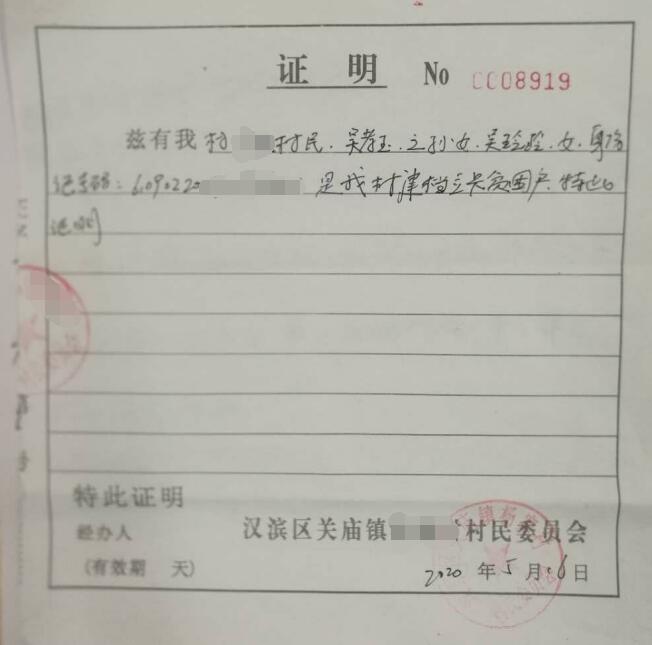 证 明 No 0008919
兹有我村 村民.吴孝玉.之孙女.吴玲玲.女.身份
证号码:6090220 是我村建档立卡贫困户.特此
证明
特此证明
经办人 汉滨区关庙镇 村民委员会
(有效期 天) 2020 年 5 月 06 日